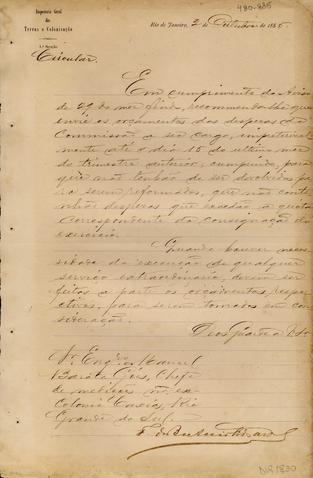 490-885
Inspectoria Geral
das
Terras e Colonização
Rio de Janeiro, 2 de Outubro de 1885
1.ª Secção
Circular.
Em cumprimento do Aviso
de 29 do mez findo, recommendo-lhe que
envie os orçamentos das despezas da
Commissão a seo cargo, impreterivel
mente até o dia 15 do ultimo mez
do trimestre anterior, cumprindo, para
que não tenhão de ser devolvidos pa
ra serem reformados, que não conte
nhão despezas que excedão a quota
correspondente da consignação do
exercicio.
Quando houver neces
sidade da execução de qualquer
serviço extraordinario, devem ser
feitos a parte os orçamentos respec
tivos, para serem tomados em con
sideração.
Deos Guarde a
Sr. Eng.º Manuel
Barata Góis, Chefe
de medições na ex
Colonia Caxias, Rio
Grande do Sul
NR 1830